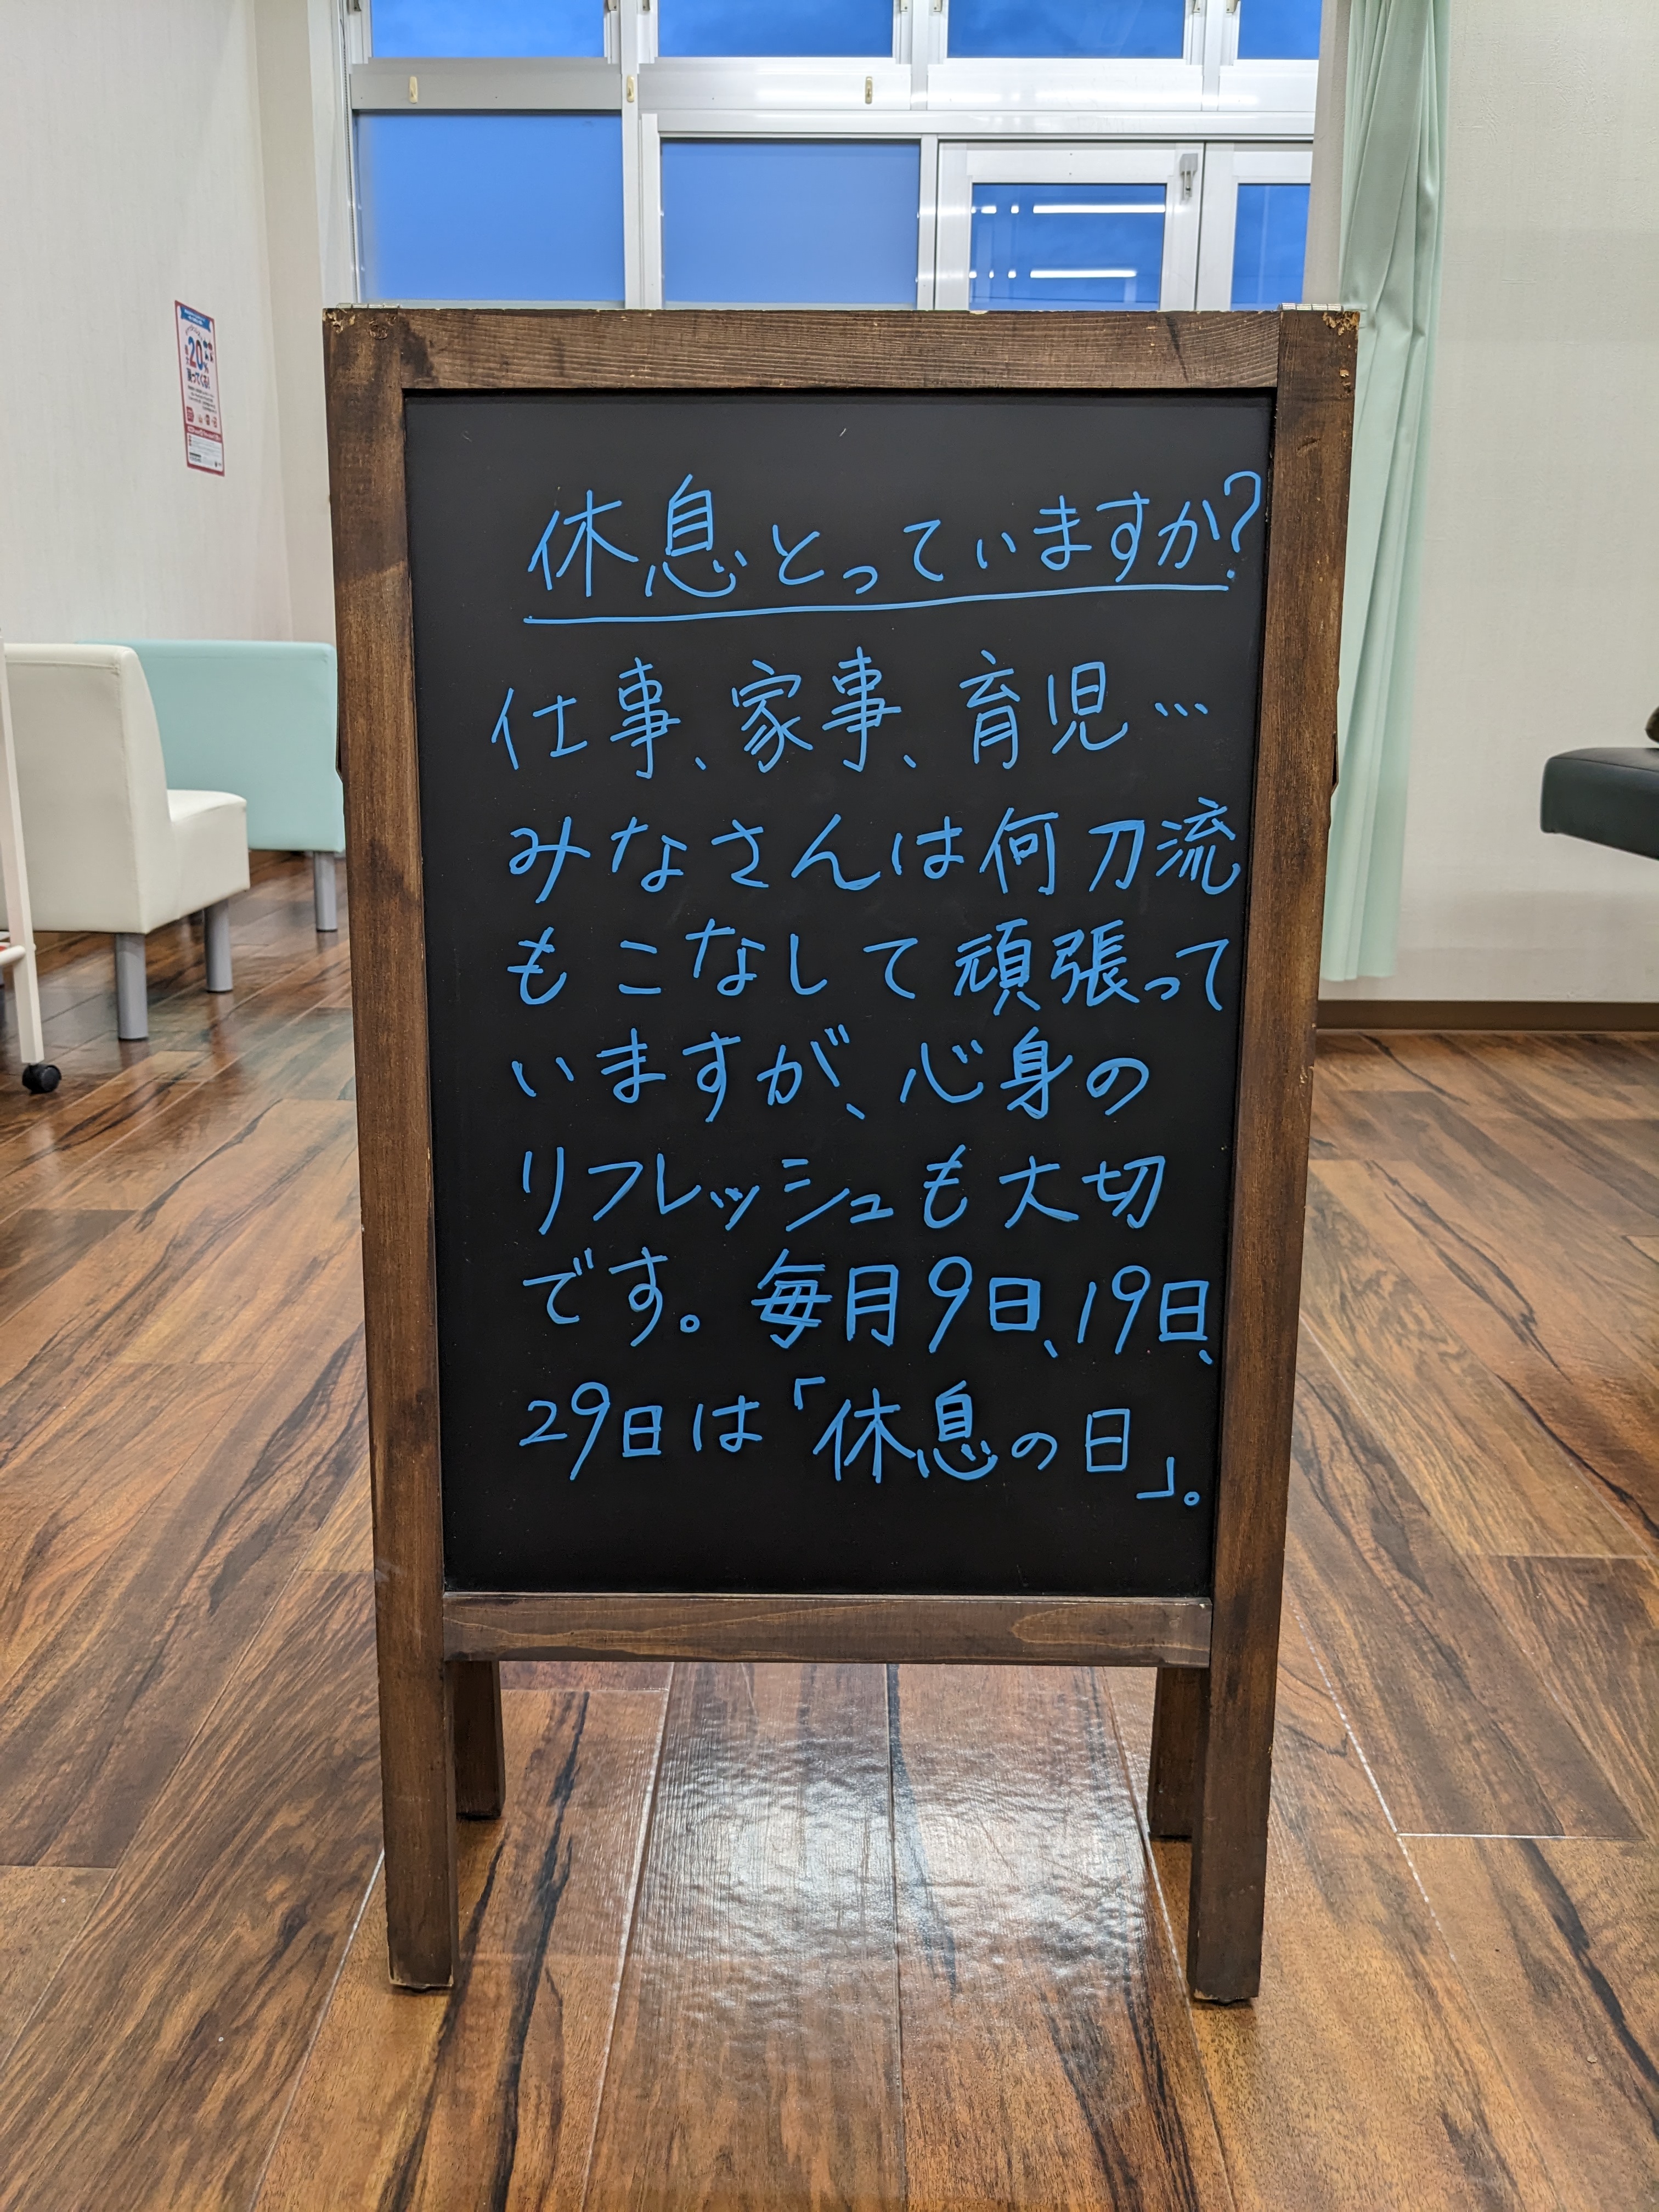 休息とっていますか?
仕事、家事、育児…
みなさんは何刀流
もこなして頑張って
いますが、心身の
リフレッシュも大切
です。毎月9日、19日、
29日は「休息の日」。
20%